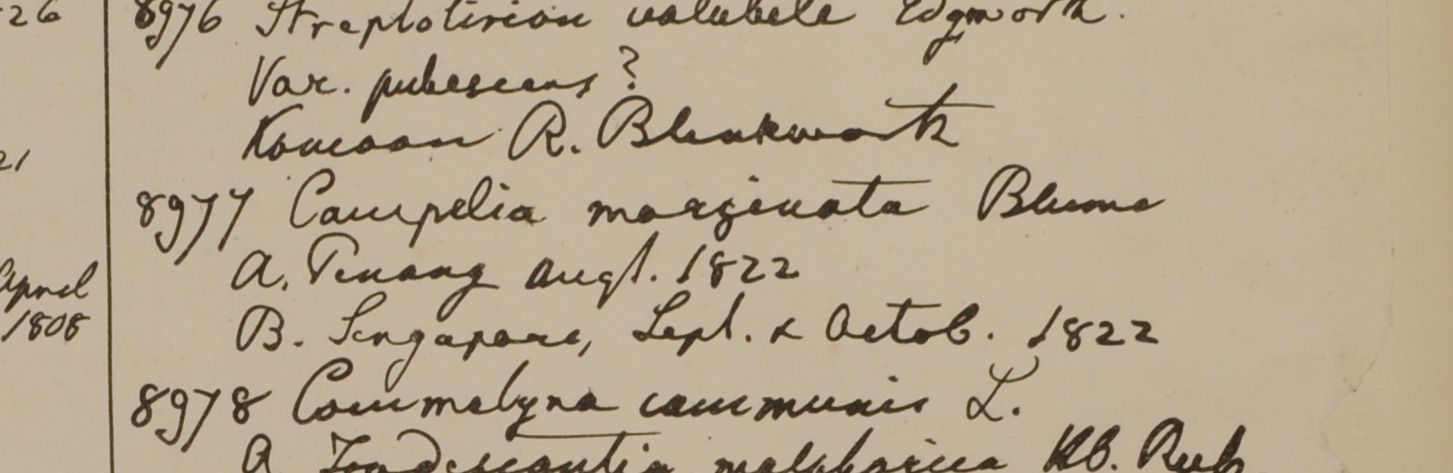 26
8976 Streptolirion volubele Edgworth.
Var. pubescens?
Komaon R. Blinkworth
21
8977 Campelia marginata Blume
A. Penang Augt. 1822
April
B. Singapore, Sept. & Octob. 1822
1808
8978 Commelyna communis L.
A Tradescantia malabarica Hb.